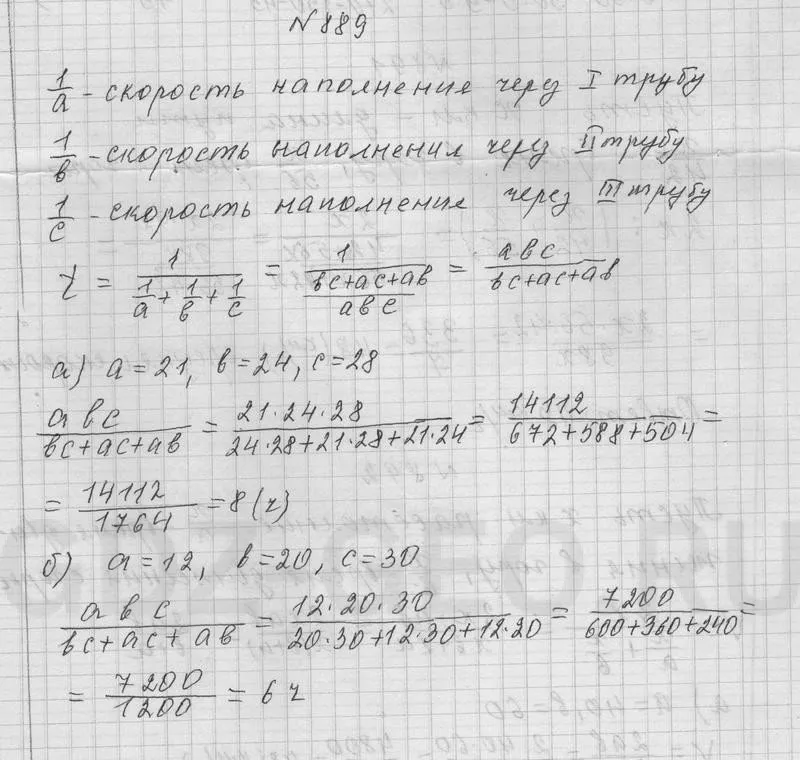 №889
1/a - скорость наполнения через I трубу
1/в - скорость наполнения через II трубу
1/c - скорость наполнения через III трубу
t = 1/(1/a + 1/в + 1/c) = 1/((вc+ac+aв)/(aвc)) = aвc/(вc+ac+aв)
а) a=21, в=24, c=28
aвc/(вc+ac+aв) = 21·24·28/(24·28+21·28+21·24) = 14112/(672+588+504) =
= 14112/1764 = 8(ч)
б) a=12, в=20, c=30
aвc/(вc+ac+aв) = 12·20·30/(20·30+12·30+12·20) = 7200/(600+360+240) =
= 7200/1200 = 6 ч